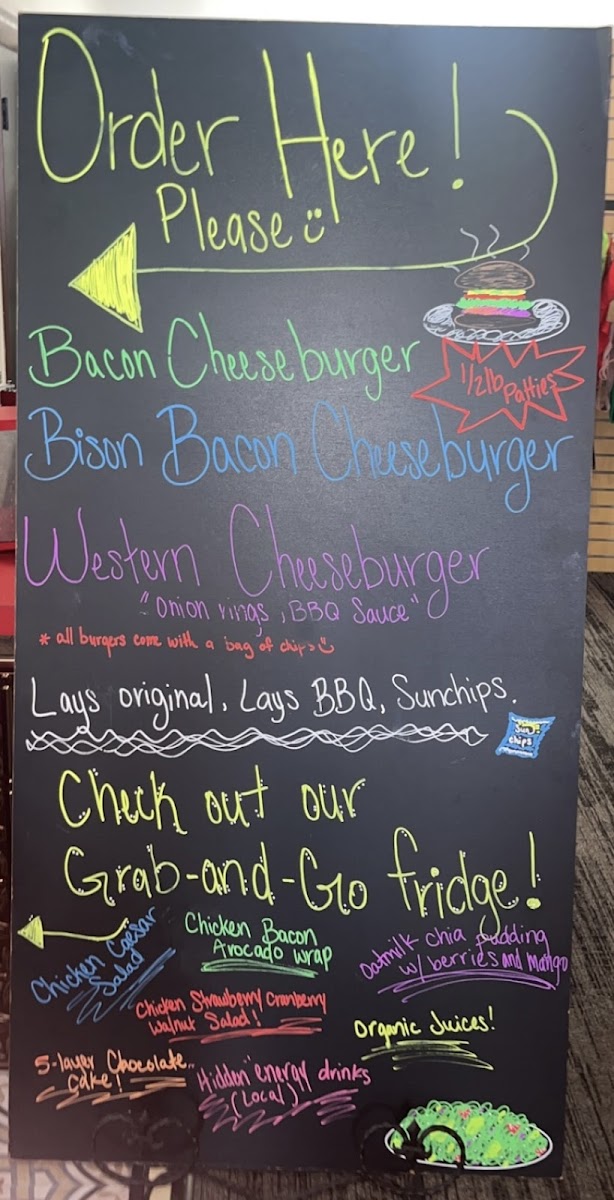 Order Here!
Please
Bacon Cheeseburger
1/2lb Patties
Bison Bacon Cheeseburger
Western Cheeseburger
"onion rings, BBQ Sauce"
* all burgers come with a bag of chips
Lays original, Lays BBQ, Sunchips.
Sun
chips
Check out our
Grab-and-Go fridge!
Chicken Caesar
Salad
Chicken Bacon
Avocado wrap
Oatmilk chia pudding
w/ berries and mango
Chicken Strawberry Cranberry
Walnut Salad!
Organic Juices!
5-layer Chocolate
Cake!
Hidden energy drinks
(Local)